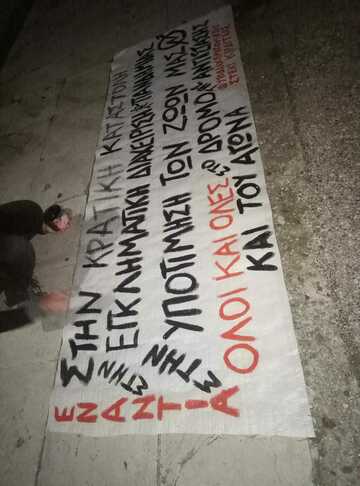 ΕΝΑΝΤΙΑ
ΣΤΗΝ ΚΡΑΤΙΚΗ ΚΑΤΑΣΤΟΛΗ
ΣΤΗΝ ΕΓΚΛΗΜΑΤΙΚΗ ΔΙΑΧΕΙΡΙΣΗ ΤΗΣ ΠΑΝΔΗΜΙΑΣ
ΣΤΗΝ ΥΠΟΤΙΜΗΣΗ ΤΩΝ ΖΩΩΝ ΜΑΣ
ΟΛΟΙ ΚΑΙ ΟΛΕΣ ΣΤΟ ΔΡΟΜΟ ΤΗΣ ΑΝΤΙΣΤΑΣΗΣ
ΚΑΙ ΤΟΥ ΑΓΩΝΑ
ΣΤΕΚΙ